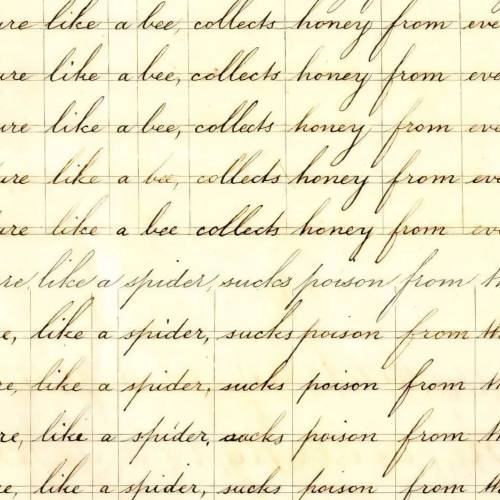 ure like a bee, collects honey from eve
ure like a bee, collects honey from eve
ure like a bee, collects honey from eve
ure like a bee, collects honey from eve
ure like a bee collects honey from eve
re, like a spider, sucks poison from th
e, like a spider, sucks poison from th
re, like a spider, sucks poison from th
re, like a spider, sucks poison from th
e, like a spider, sucks poison from th